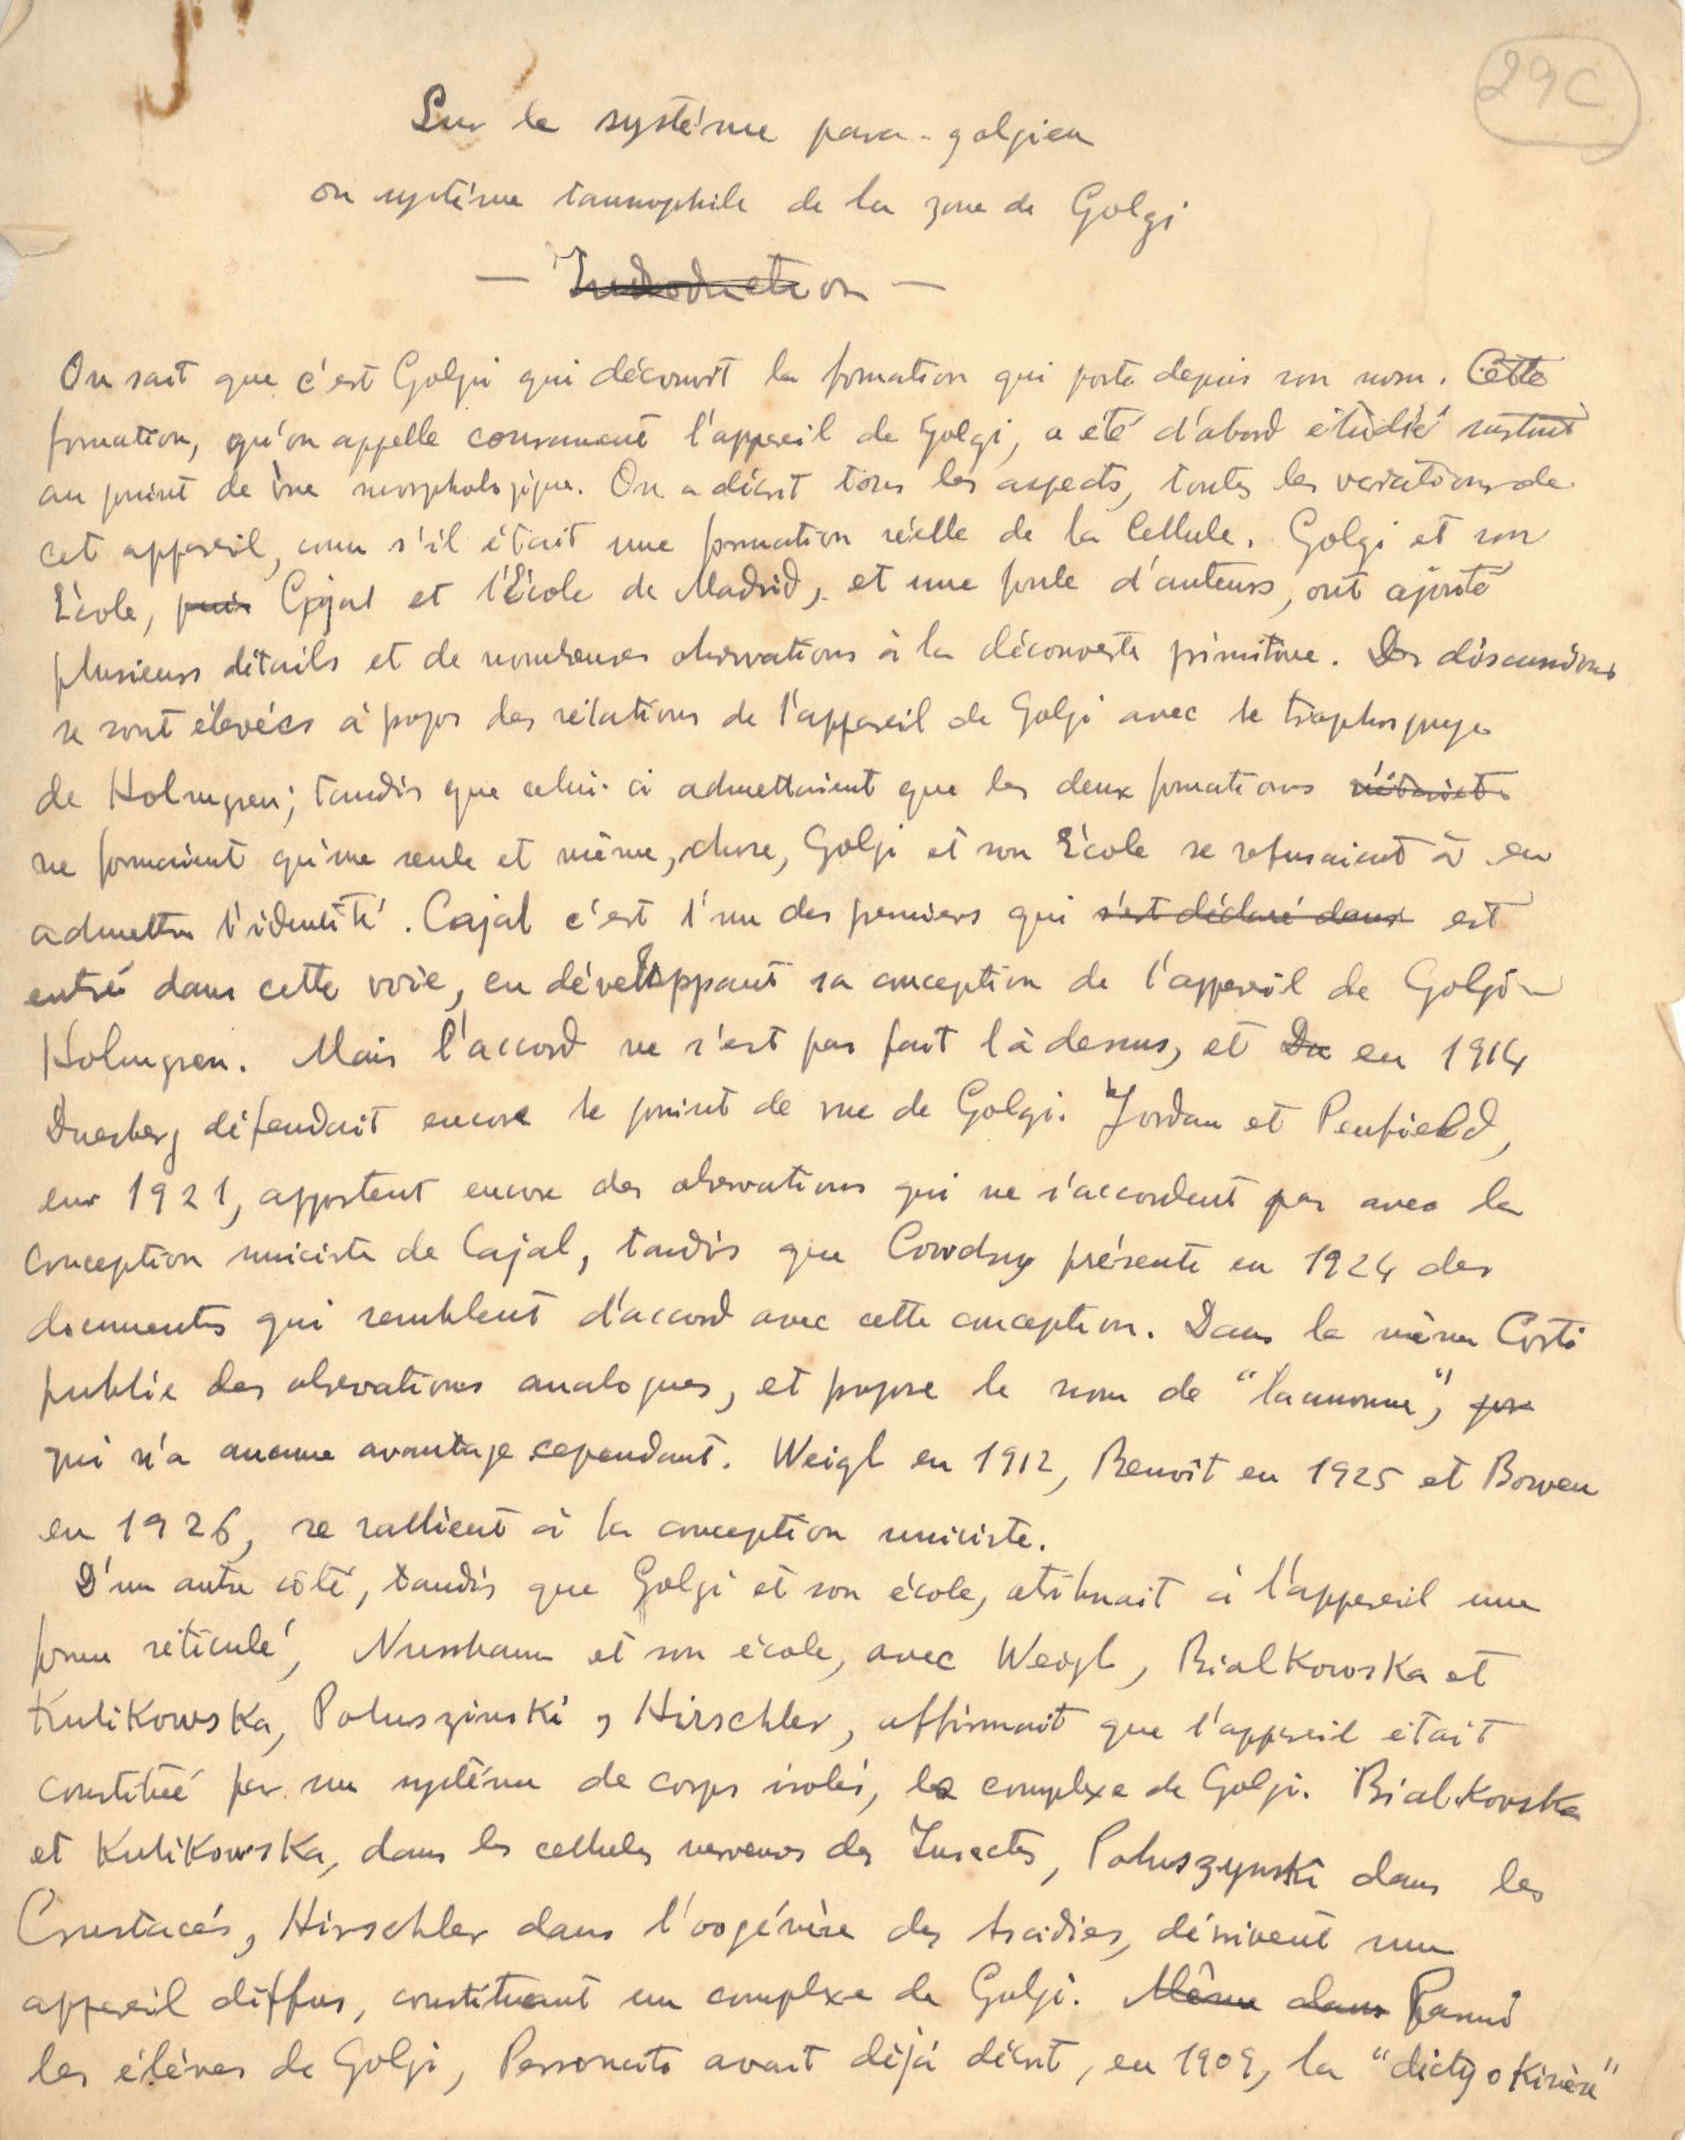 29C
Sur le système para-golgien
ou système tannophile de la zone de Golgi
— Introduction —
On sait que c'est Golgi qui découvrit la formation qui porte depuis son nom. Cette
formation, qu'on appelle couramment l'appareil de Golgi, a été d'abord étudié surtout
au point de vue morphologique. On a décrit tous les aspects, toutes les variations de
cet appareil, comm s'il était une formation réelle de la Cellule. Golgi et son
École, puis Cajal et l'École de Madrid, et une foule d'auteurs, ont ajouté
plusieurs détails et de nombreuses observations à la découverte primitive. Des discussions
se sont élevées à propos des rélations de l'appareil de Golgi avec le trophosponge
de Holmgren; tandis que celui-ci admettaient que les deux formations n'étaient
ne formaient qu'une seule et même, chose, Golgi et son École se refusaient à en
admettre l'identité. Cajal c'est l'un des premiers qui s'est déclaré dans est
entré dans cette voie, en développant sa conception de l'appareil de Golgi-
Holmgren. Mais l'accord ne s'est pas fait là dessus, et en 1914
Duesberg défendait encore le point de vue de Golgi. Jordan et Penfield,
en 1921, apportent encore des observations qui ne s'accordent pas avec la
conception uniciste de Cajal, tandis que Cowdry présente en 1924 des
documents qui semblent d'accord avec cette conception. Dans la même Corti
publie des observations analogues, et propose le nom de "lacunome",
qui n'a aucune avantage cependant. Weigl en 1912, Benoît en 1925 et Bowen
en 1926, se rallient à la conception uniciste.
D'un autre côté, tandis que Golgi et son école, atribuait à l'appareil une
forme réticulé, Nussbaum et son école, avec Weigl, Bialkowska et
Kulikowska, Poluszinski, Hirschler, affirmait que l'appareil était
constitué par un système de corps isolés, le complexe de Golgi. Bialkovska
et Kulikowska, dans les cellules nerveuses des Insectes, Poluszynski dans les
Crustacés, Hirschler dans l'oogénèse des Ascidies, décrivent un
appareil diffus, constituant un complexe de Golgi. Même dans Parmi
les élèves de Golgi, Perroncito avait déjà décrit, en 1909, la "dictyokinèse"